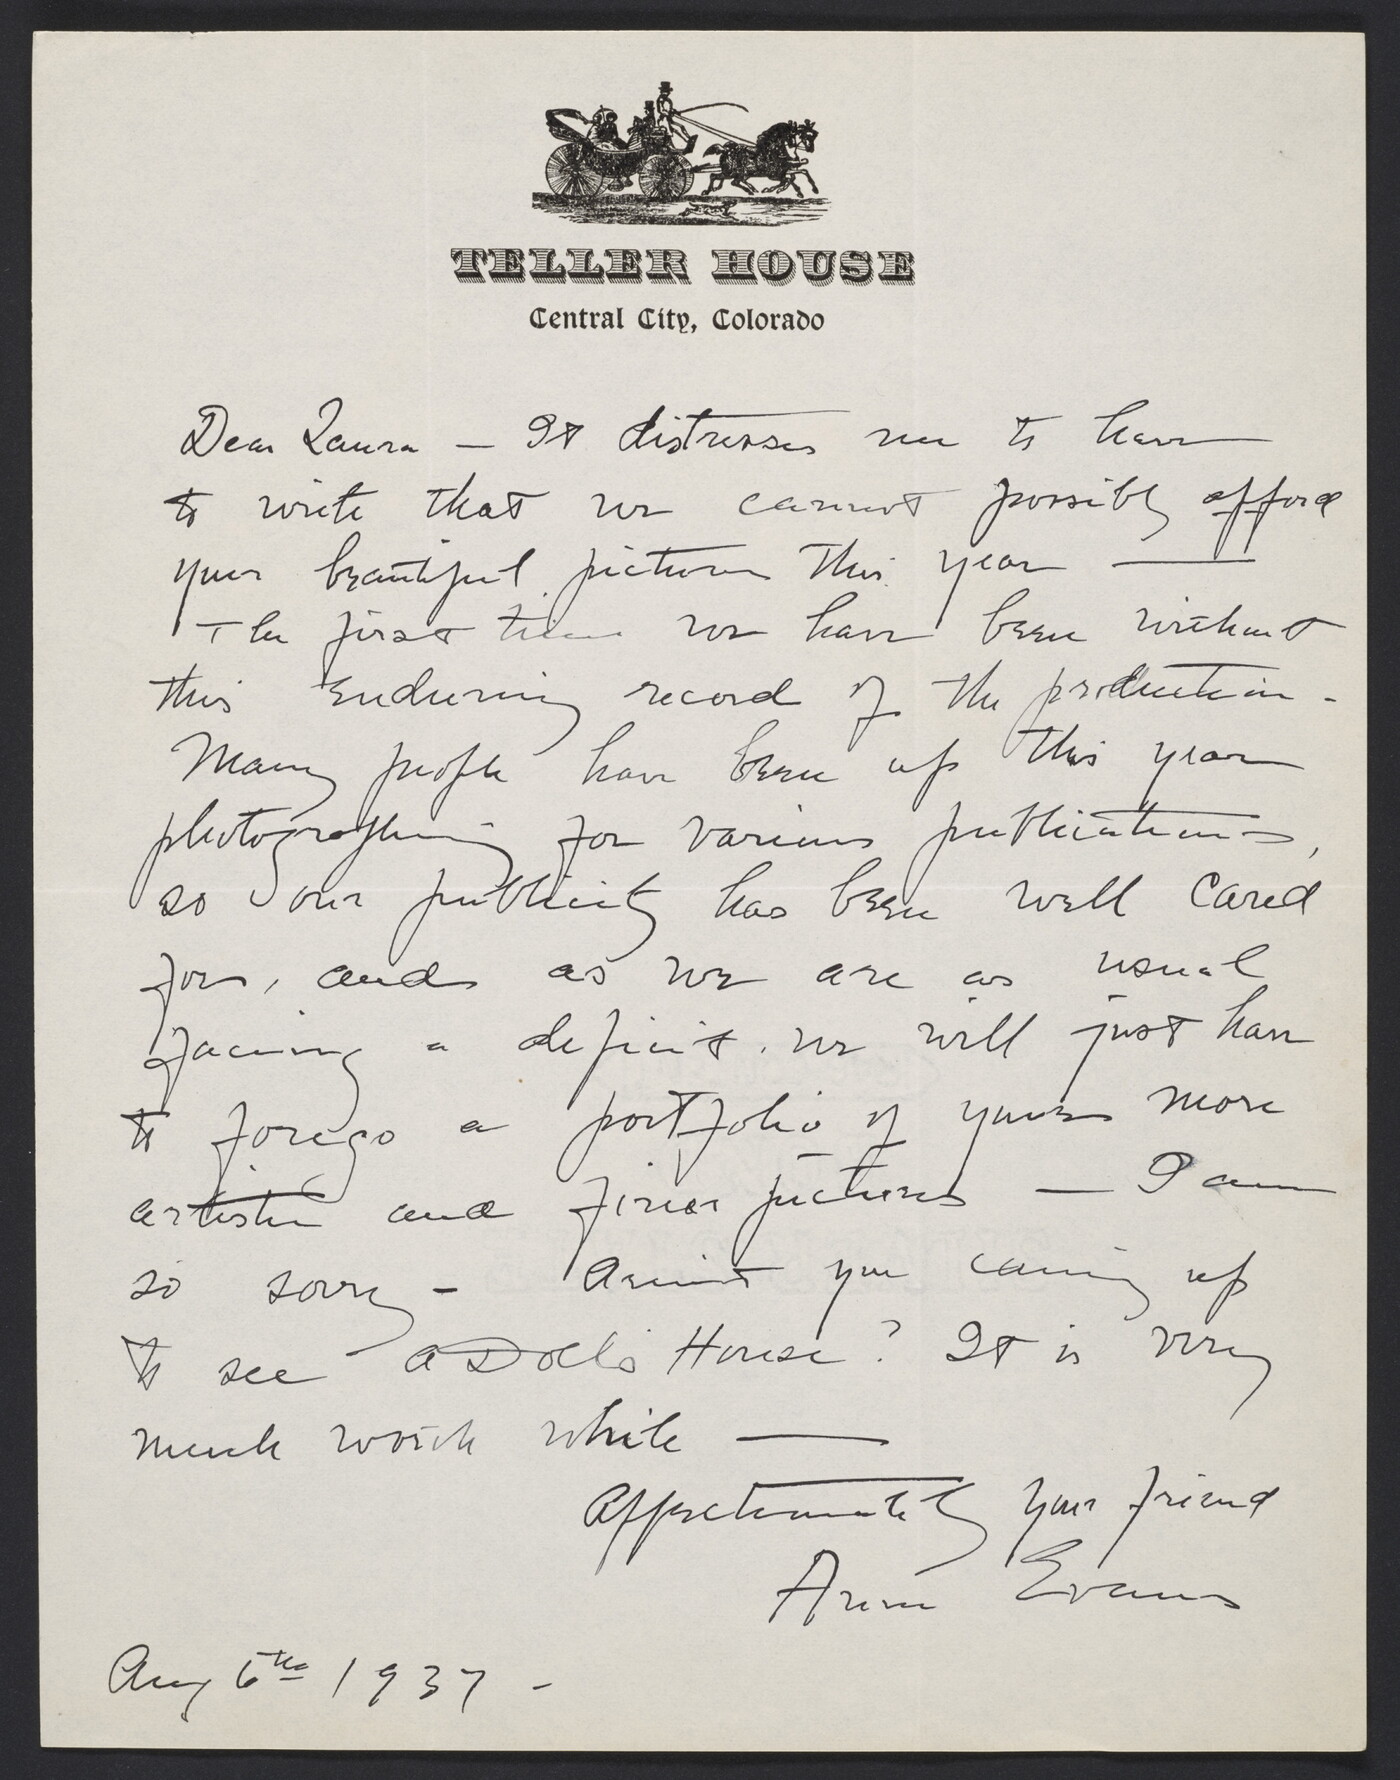 TELLER HOUSE
Central City, Colorado
Dear Laura — It distresses me to have
to write that we cannot possibly afford
your beautiful pictures this year —
The first time we have been without
this enduring record of the production -
Many people have been up this year
photographing for various publications,
so our publicity has been well cared
for, and as we are as usual
facing a deficit. we will just have
to forego a portfolio of yours more
artistic and finer pictures — I am
so sorry - Aren't you coming up
to see A Doll's House? It is very
much worth while —
Affectionately your friend
Anne Evans
Aug 6th 1937 -